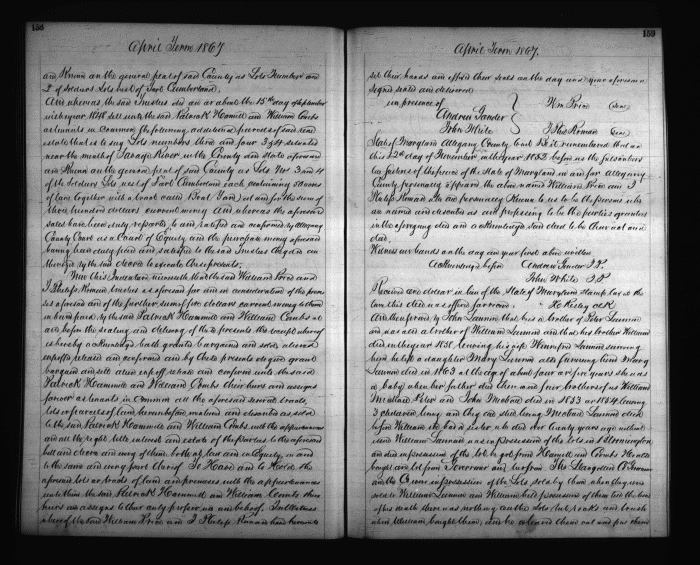 158
April Term 1867
and Known on the general plat of said County as Lots Number and
2 of Soldiers Lots West of Fort Cumberland.
And whereas the said Trustees did on or about the 15th day of September
in the year 1848 sell unto the said Patrick Hamill and William Combs
as tenants in Common the following additional parcels of said real
estate that is to say Lots numbers three and four 3 & 4 situated
near the mouth of Savage River in the County and State aforesaid
and Known on the general plat of said County as Lots No 3 and 4
of the Soldiers Lots west of Fort Cumberland each containing 50 acres
of land together with a tract called Boat Yard Lot and for the sum of
three hundred dollars current money And whereas the aforesaid
sales have been duly reported to and ratified and confirmed by Allegany
County Court as a Court of Equity and the purchase money aforesaid
having been duly paid and satisfied to the said Trustees they are
by the said decree to execute these presents.
Now this Indenture witnesseth that the said William Price and
J Philip Roman Trustees as aforesaid for and in consideration of the
aforesaid and of the further sum of five dollars current money to them
in hand paid by the said Patrick Hammill and William Combs at
and before the sealing and delivery of these presents the receipt whereof
is hereby acknowledged hath granted bargained and sold aliened
enfeoffed released and confirmed and by these presents do give grant
bargain and sell alien enfeoff release and confirm unto the said
Patrick Hammill and William Combs their heirs and assigns
forever as tenants in common all the aforesaid several tracts,
lots or parcels of land hereinbefore mentioned and described as sold
to the said Patrick Hammill and William Combs with the appurtenances
and all the right title interest and estate of the parties to the aforesaid
bill and decree and every of them both at law and in Equity in and
to the same and every part thereof To Have and to Hold the
aforesaid lots or tracts of land and premises with the appurtenances
unto them the said Patrick Hammill and William Combs their
heirs and assigns to their only proper use and behoof. In Witness
whereof the said William Price and J Philip Roman have hereunto
159
April Term 1867.
set their hands and affixed their seals on the day and year aforesaid
Signed sealed and delivered
in presence of Wm Price (Seal)
Andrew Gander
John White J Phil Roman (Seal)
State of Maryland Allegany County to wit Be it remembered that on
this 22nd day of November in the year 1852 before us the subscribers
two Justices of the peace of the State of Maryland in and for Allegany
County personally appeared the above named William Price and J
Philip Roman who are personally Known to us to be the persons who
are named and described as and professing to be the parties grantors
in the foregoing deed and acknowledge said deed to be their act and
deed.
Witness our hands on the day and year first above written
Acknowledged before Andrew Gander J.P.
John White J.P.
of the State of Maryland Stamp tax on the
H Resley Clk
And then proved by John Lannon that he is a brother of Peter Lannon
and was also a brother of William Lannon and that his brother William
died in the year 1858 leaving his wife Winnifred Lannon surviving
him he left a daughter Mary Lannon also surviving him Mary
Lannon died in 1863 at the age of about four or five years she was
a baby when her father died then and four brothers of us William
Michael Peter and John Michael died in 1853 or 1854 leaving
3 children living and they are still living Michael Lannon died
before William we had a sister who died over twenty years ago without
issue William Lannon was in possession of the lots in Bloomington
and died in possession of the lot he got from Hamill and Combs